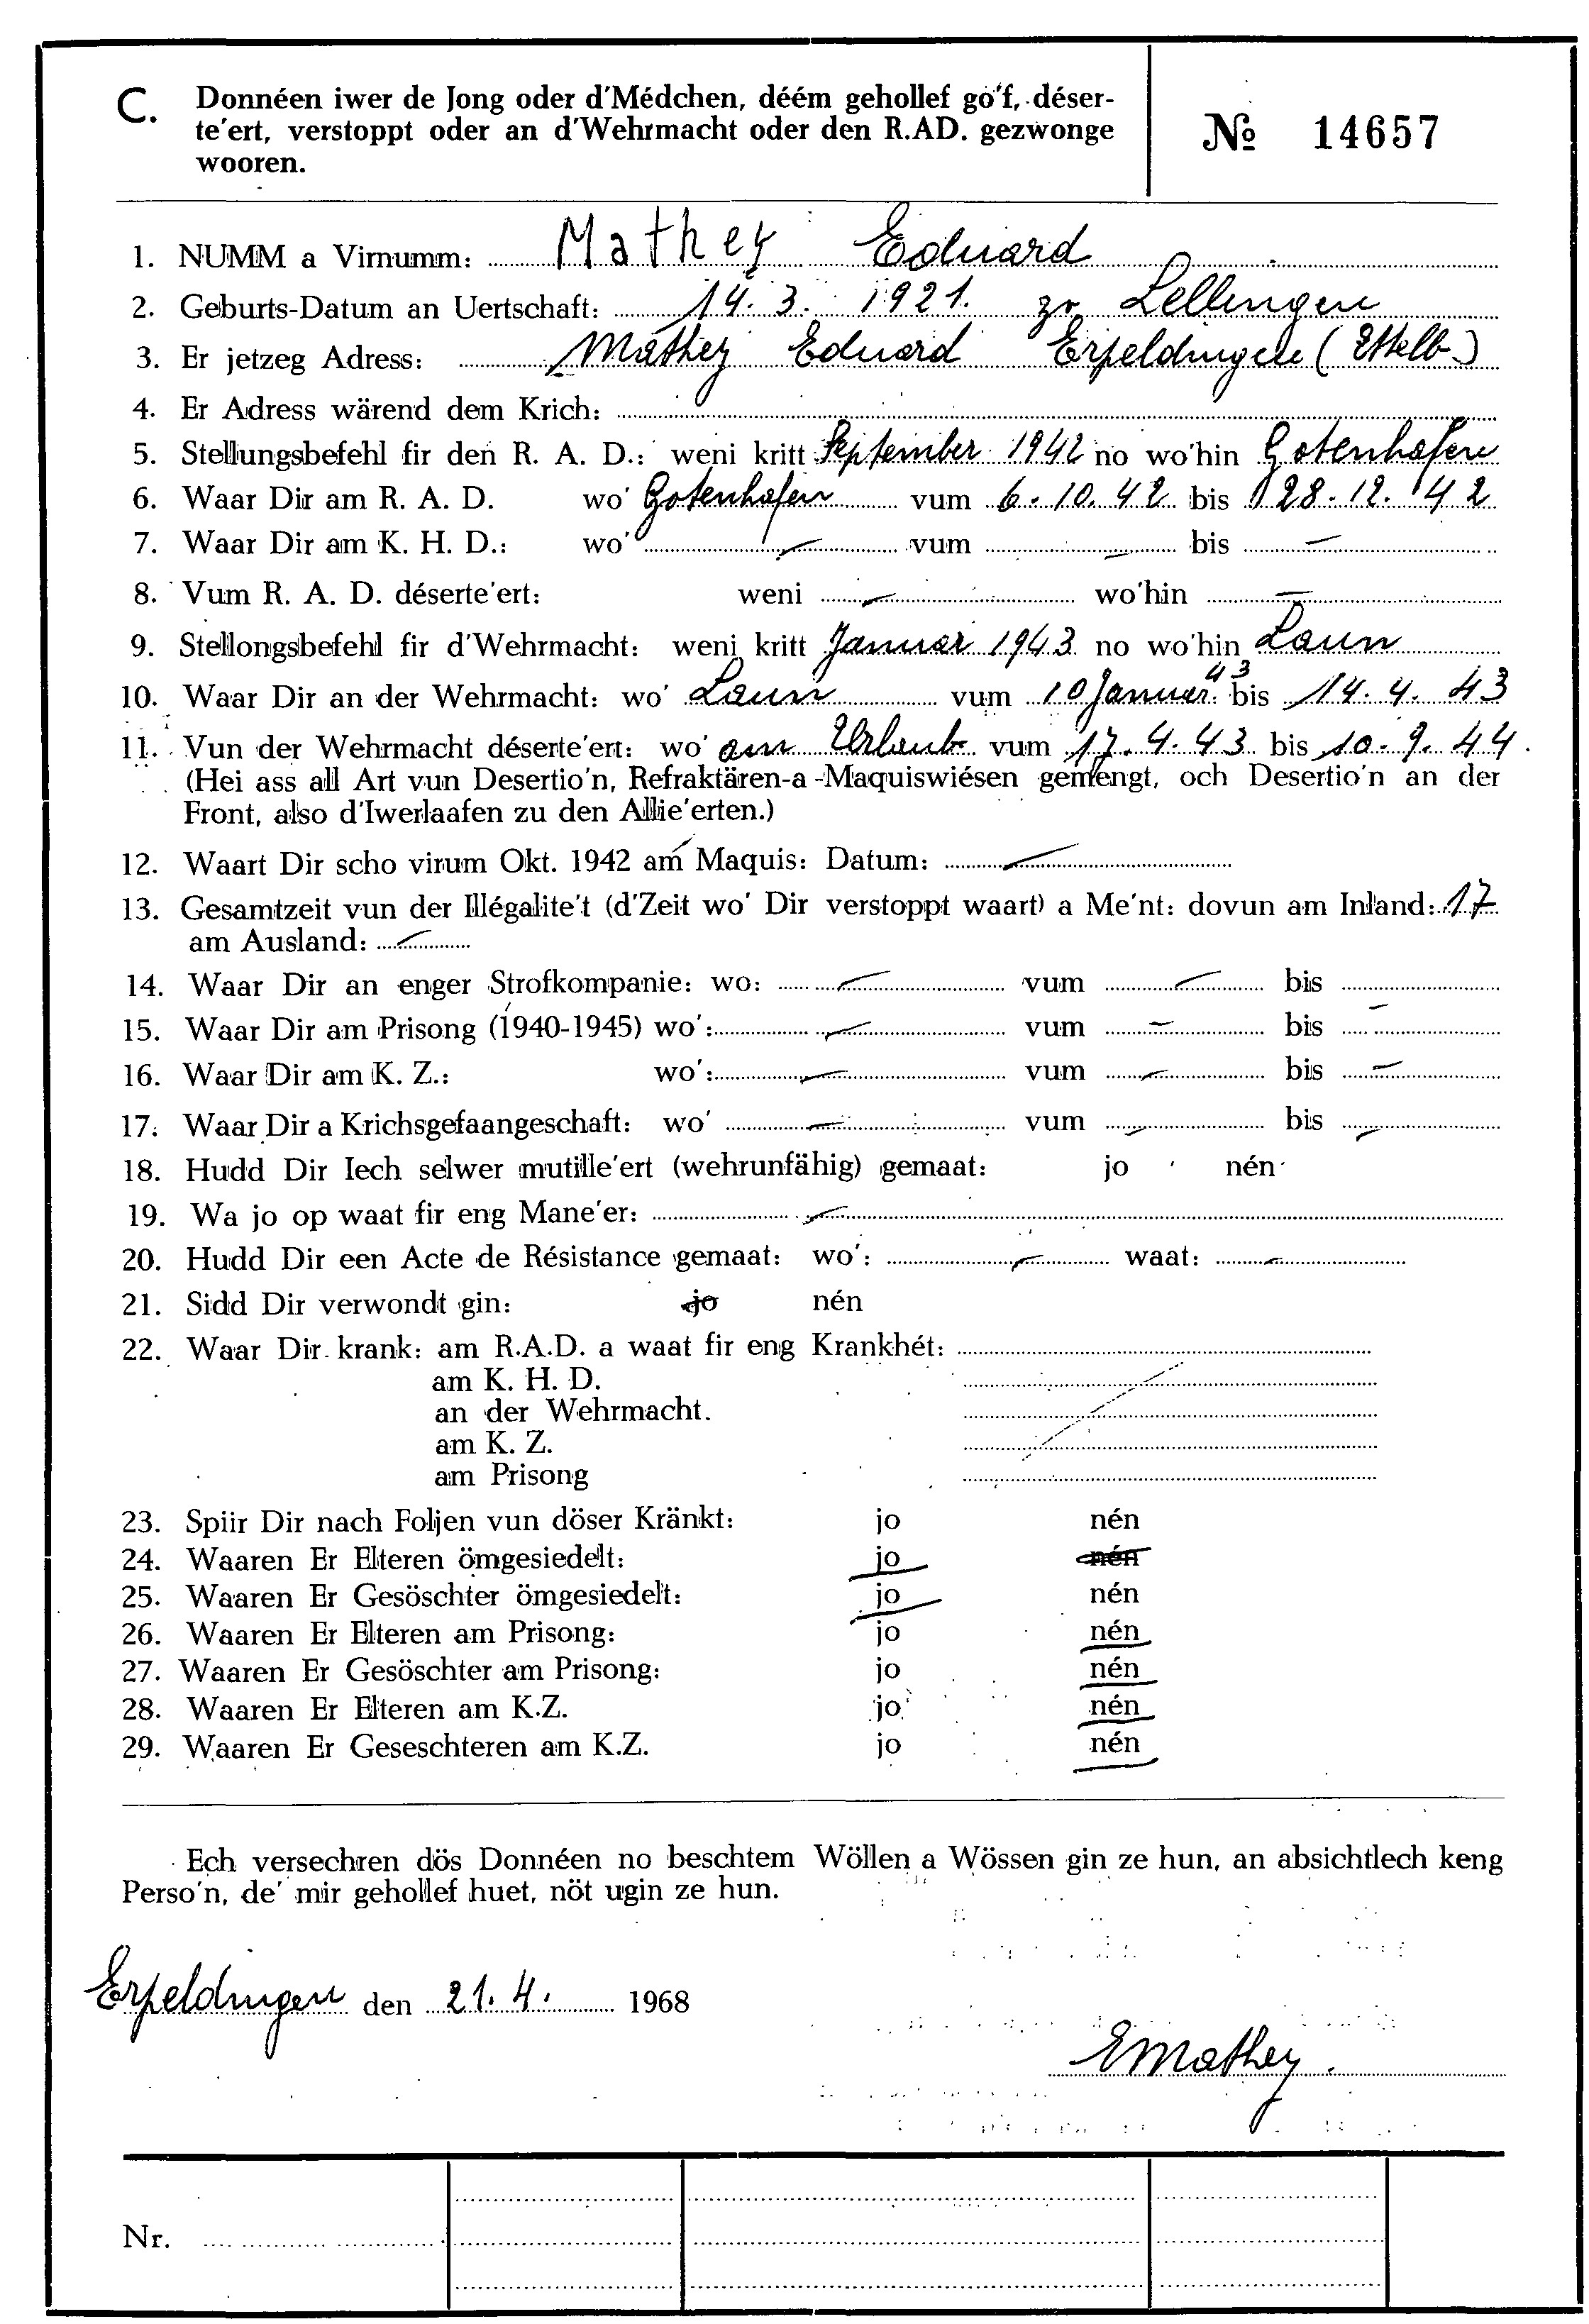 C. Donnéen iwer de Jong oder d'Médchen, déém gehollef go'f, déser-
te'ert, verstoppt oder an d'Wehrmacht oder den R.AD. gezwonge
wooren.
№ 14657
1. NUMM a Virnumm: Mathey Eduard
2. Geburts-Datum an Uertschaft: 14. 3. 1921. zu Lellingen
3. Er jetzeg Adress: Mathey Eduard Erpeldingen (Ettelb.)
4. Er Adress wärend dem Krich:
5. Stellungsbefehl fir den R. A. D.: weni kritt September 1942 no wo'hin Gotenhafen
6. Waar Dir am R. A. D. wo' Gotenhafen vum 6. 10. 42 bis 28. 12. 42
7. Waar Dir am K. H. D.: wo' — vum — bis —
8. Vum R. A. D. déserte'ert: weni — wo'hin —
9. Stellongsbefehl fir d'Wehrmacht: weni kritt Januar 1943 no wo'hin Laun
10. Waar Dir an der Wehrmacht: wo' Laun vum 10 Januar 43 bis 14. 4. 43
11. Vun der Wehrmacht déserte'ert: wo' am Urlaub vum 17. 4. 43 bis 10. 9. 44.
(Hei ass all Art vun Desertio'n, Refraktären-a-Maquiswiésen gemengt, och Desertio'n an der
Front, also d'Iwerlaafen zu den Allie'erten.)
12. Waart Dir scho virum Okt. 1942 am Maquis: Datum: —
13. Gesamtzeit vun der Illégalite't (d'Zeit wo' Dir verstoppt waart) a Me'nt: dovun am Inland: 17
am Ausland: —
14. Waar Dir an enger Strofkompanie: wo: — vum — bis
15. Waar Dir am Prisong (1940-1945) wo': — vum — bis —
16. Waar Dir am K. Z.: wo': — vum — bis —
17. Waar Dir a Krichsgefaangeschaft: wo' — vum — bis —
18. Hudd Dir Iech selwer mutille'ert (wehrunfähig) gemaat: jo nén
19. Wa jo op waat fir eng Mane'er: —
20. Hudd Dir een Acte de Résistance gemaat: wo': — waat: —
21. Sidd Dir verwondt gin: jo nén
22. Waar Dir krank: am R.A.D. a waat fir eng Krankhét:
am K. H. D.
an der Wehrmacht.
am K. Z.
am Prisong
23. Spiir Dir nach Foljen vun döser Kränkt: jo nén
24. Waaren Er Elteren ömgesiedelt: jo nén
25. Waaren Er Gesöschter ömgesiedelt: jo nén
26. Waaren Er Elteren am Prisong: jo nén
27. Waaren Er Gesöschter am Prisong: jo nén
28. Waaren Er Elteren am K.Z. jo nén
29. Waaren Er Geseschteren am K.Z. jo nén
Ech versechren dös Donnéen no beschtem Wöllen a Wössen gin ze hun, an absichtlech keng
Perso'n, de' mir gehollef huet, nöt ugin ze hun.
Erpeldingen den 21. 4. 1968
EMathey.
Nr.